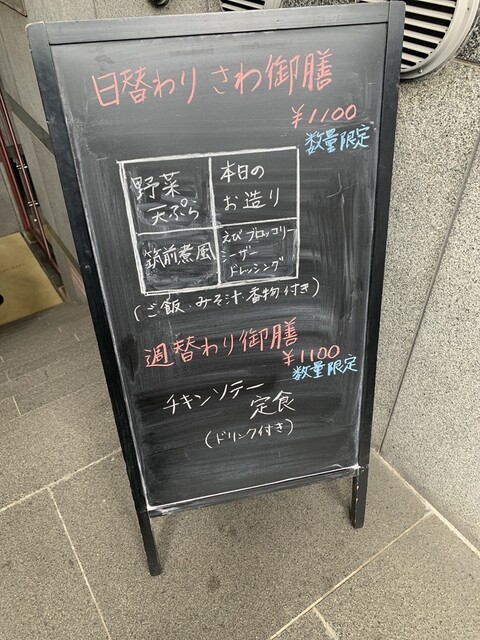 日替わり さわ御膳
¥1100
数量限定
野菜
天ぷら
本日の
お造り
筑前煮風
えびブロッコリー
シーザー
ドレッシング
(ご飯・みそ汁・香物付き)
週替わり御膳
¥1100
数量限定
チキンソテー
定食
(ドリンク付き)